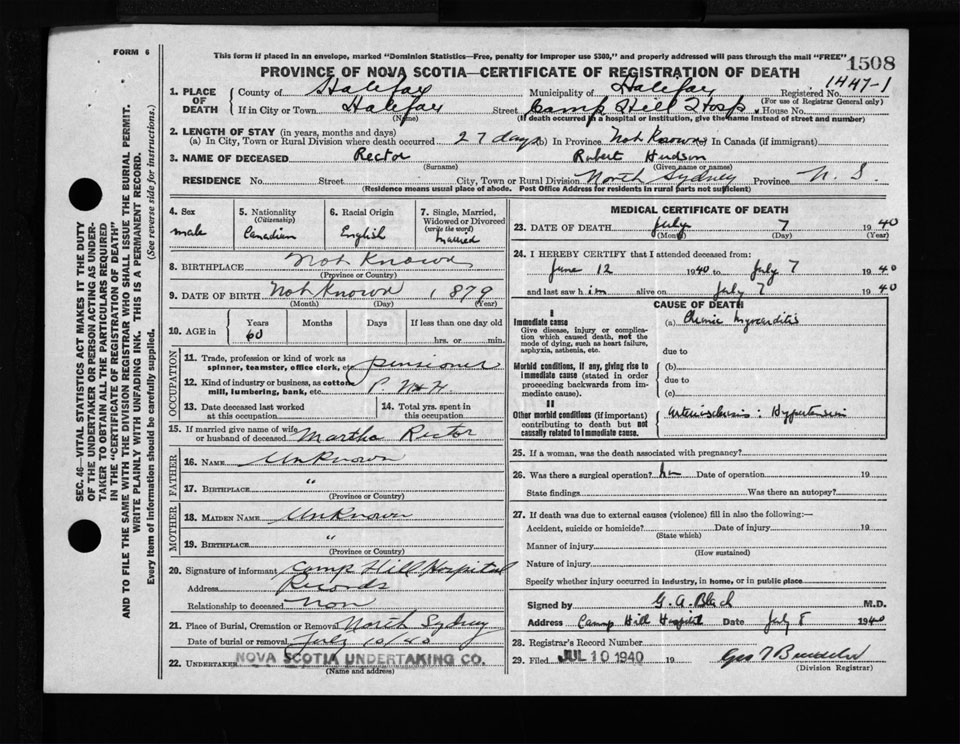 FORM 6
This form if placed in an envelope, marked "Dominion Statistics—Free, penalty for improper use $300," and properly addressed will pass through the mail "FREE"
1508
PROVINCE OF NOVA SCOTIA—CERTIFICATE OF REGISTRATION OF DEATH
1. PLACE OF DEATH
County of Halifax Municipality of Halifax Registered No. 1447-1
(For use of Registrar General only)
If in City or Town Halifax Street Camp Hill Hosp House No.
(Name) (If death occurred in a hospital or institution, give the name instead of street and number)
2. LENGTH OF STAY (in years, months and days)
(a) In City, Town or Rural Division where death occurred 27 days (b) In Province Not Known In Canada (if immigrant)
3. NAME OF DECEASED Rector Robert Hudson
(Surname) (Given name or names)
RESIDENCE No. Street City, Town or Rural Division North Sydney Province N. S.
(Residence means usual place of abode. Post Office Address for residents in rural parts not sufficient)
4. Sex
male
5. Nationality
(Citizenship)
Canadian
6. Racial Origin
English
7. Single, Married, Widowed or Divorced
(write the word)
Married
8. BIRTHPLACE Not Known
(Province or Country)
9. DATE OF BIRTH Not Known 1879
(Month) (Day) (Year)
10. AGE in
Years Months Days If less than one day old
60 hrs. or min.
OCCUPATION
11. Trade, profession or kind of work as spinner, teamster, office clerk, etc. pensioner
12. Kind of industry or business, as cotton mill, lumbering, bank, etc.
13. Date deceased last worked at this occupation
14. Total yrs. spent in this occupation
15. If married give name of wife or husband of deceased Martha Rector
FATHER
16. NAME Unknown
17. BIRTHPLACE "
(Province or Country)
MOTHER
18. MAIDEN NAME Unknown
19. BIRTHPLACE "
(Province or Country)
20. Signature of informant Camp Hill Hospital
Address Records
Relationship to deceased non
21. Place of Burial, Cremation or Removal North Sydney
Date of burial or removal July 10/40
22. UNDERTAKER NOVA SCOTIA UNDERTAKING CO.
(Name and address)
MEDICAL CERTIFICATE OF DEATH
23. DATE OF DEATH July 7 1940
(Month) (Day) (Year)
24. I HEREBY CERTIFY that I attended deceased from:
June 12 1940 to July 7 1940
and last saw him alive on July 7 1940
CAUSE OF DEATH
I
Immediate cause
Give disease, injury or complication which caused death, not the mode of dying, such as heart failure, asphyxia, asthenia, etc.
(a) Chronic myocarditis
due to
Morbid conditions, if any, giving rise to immediate cause (stated in order proceeding backwards from immediate cause).
(b)
due to
(c)
II
Other morbid conditions (if important) contributing to death but not causally related to immediate cause.
Arteriosclerosis: Hypertension
25. If a woman, was the death associated with pregnancy?
26. Was there a surgical operation? no Date of operation 19
State findings Was there an autopsy?
27. If death was due to external causes (violence) fill in also the following:—
Accident, suicide or homicide? Date of injury 19
(State which)
Manner of injury
(How sustained)
Nature of injury
Specify whether injury occurred in industry, in home, or in public place
Signed by G. A. Black M.D.
Address Camp Hill Hospital July 8 1940
28. Registrar's Record Number
29. Filed JUL 10 1940 19 Geo
(Division Registrar)
SEC. 46—VITAL STATISTICS ACT MAKES IT THE DUTY
OF THE UNDERTAKER OR PERSON ACTING AS UNDERTAKER
TO OBTAIN ALL THE PARTICULARS REQUIRED
IN THE "CERTIFICATE OF REGISTRATION OF DEATH"
AND TO FILE THE SAME WITH THE DIVISION REGISTRAR WHO SHALL ISSUE THE BURIAL PERMIT.
WRITE PLAINLY WITH UNFADING INK. THIS IS A PERMANENT RECORD.
Every item of information should be carefully supplied. (See reverse side for instructions.)